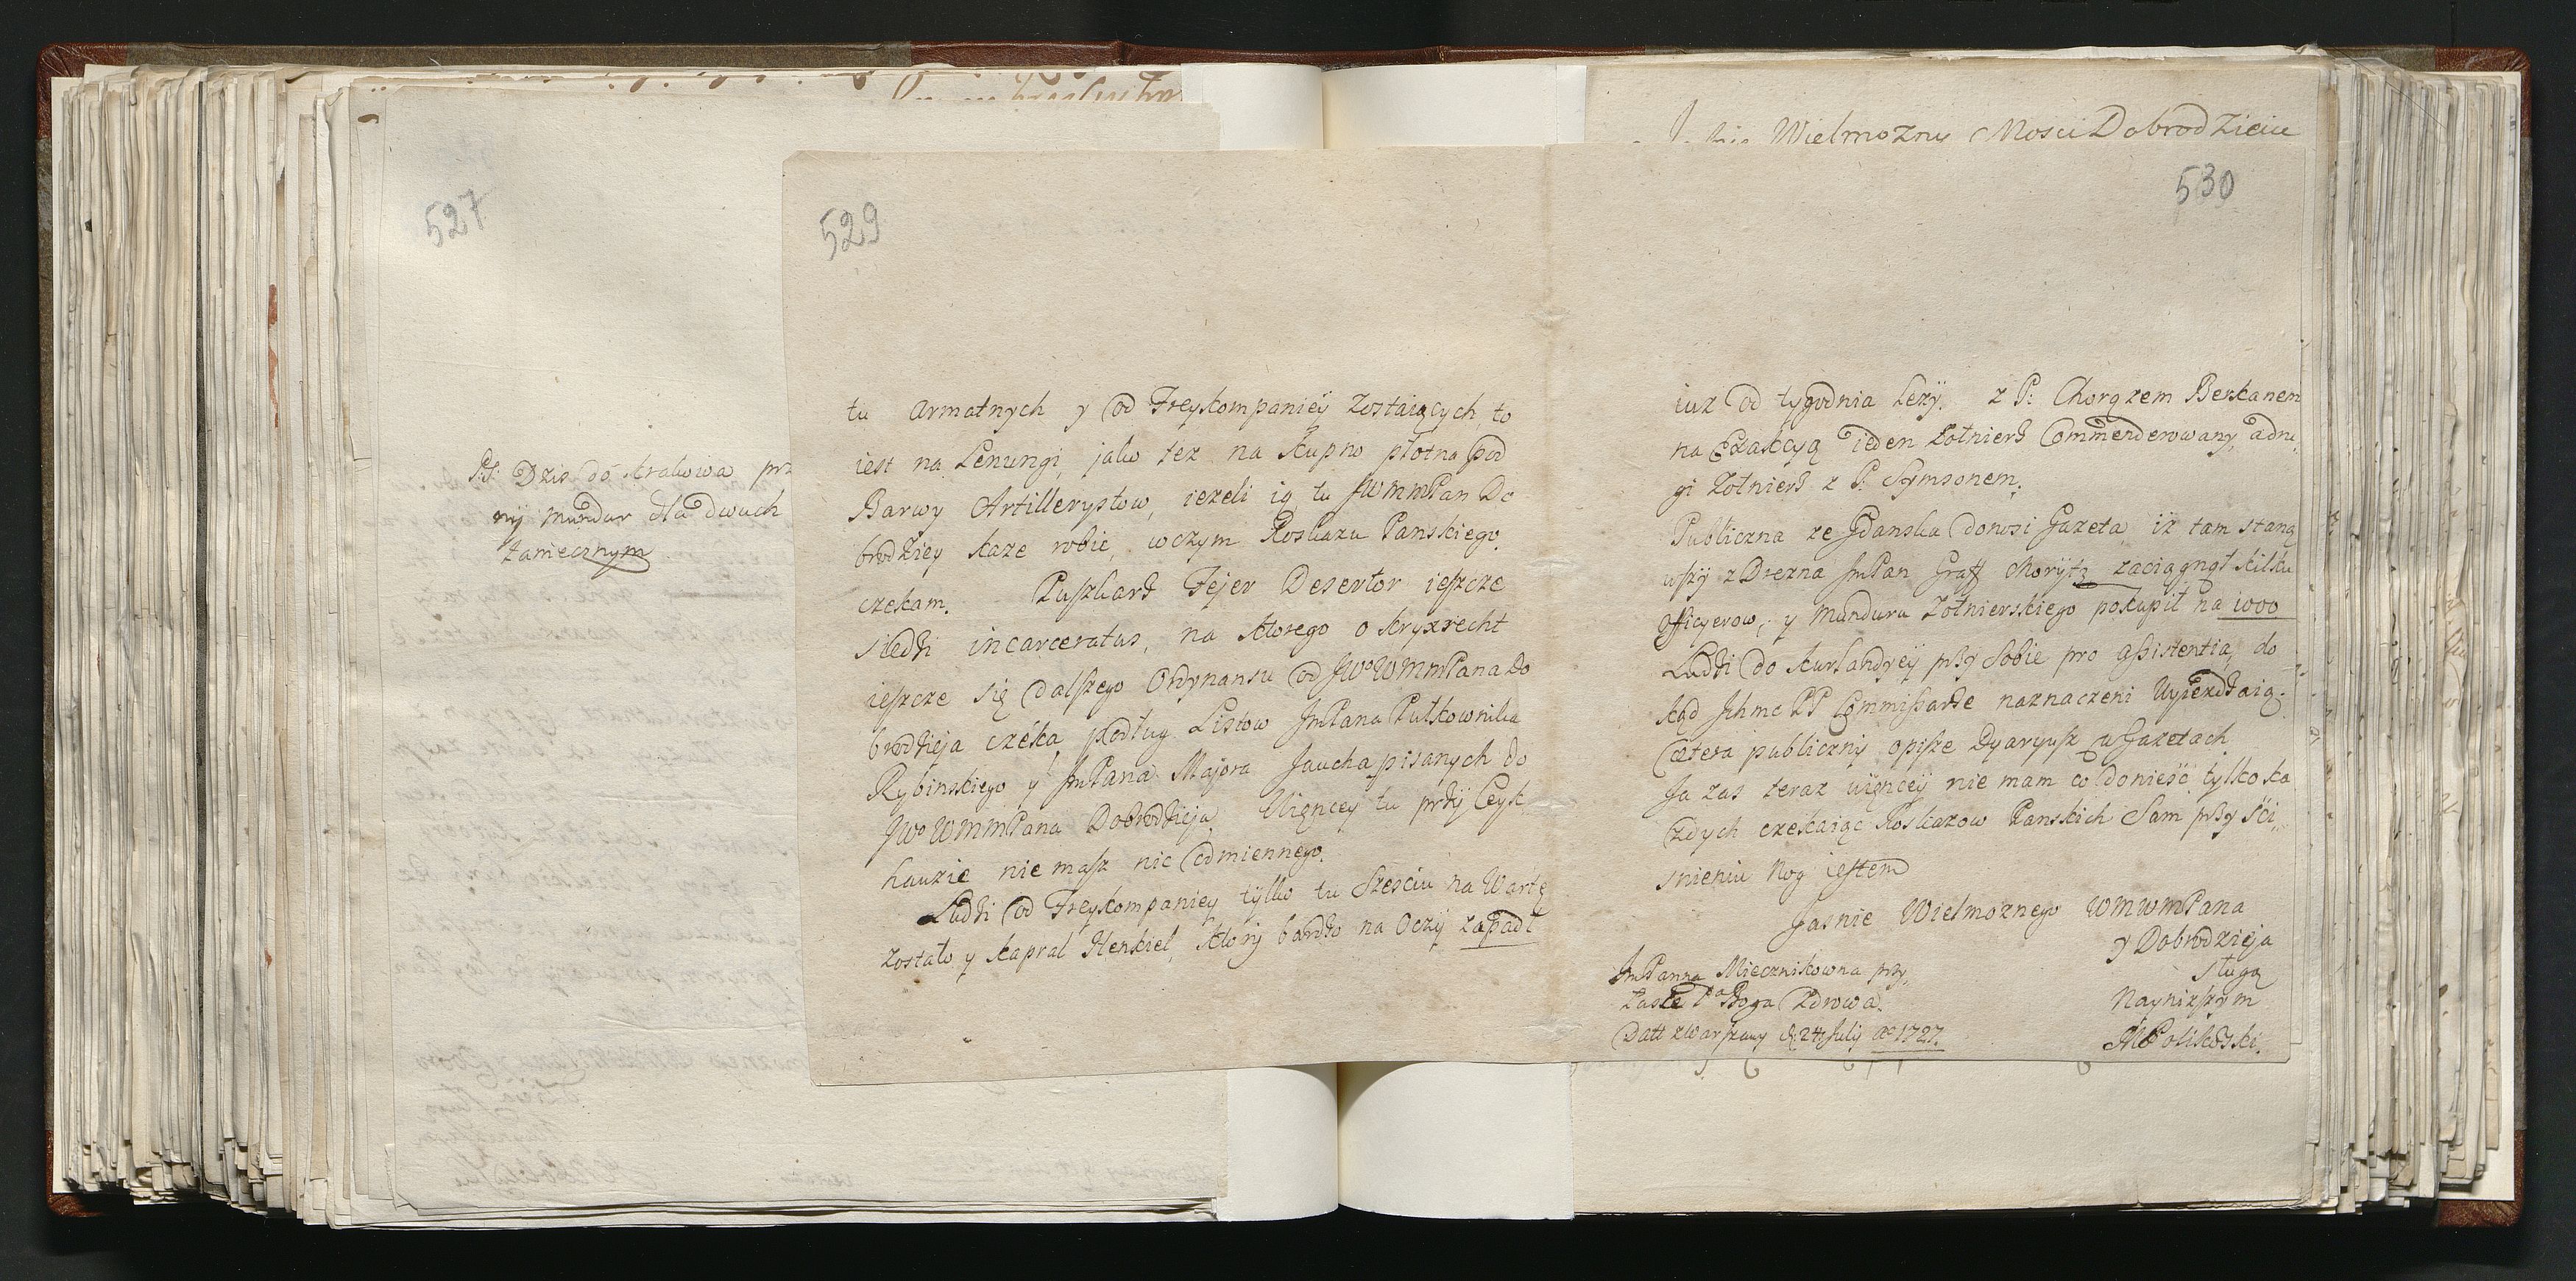 527
PS. Dzis do Krakowa prz
ny mundur dla dwuch
taniecznym
529
tu Armatnych y od Freykompanieÿ zostaiących, to
iest na Lenungi, jako tez na kupno płotna pod
Barwy Artillerystow, iezeli ią tu JWMMPan Do
brodziey kaze robic, wczym Roskazu Panskiego
czekam. Puszkarz Fejer Desertor ieszcze
siedzi incarceratus, na ktorego o kryxrecht
ieszcze się dalszego Ordynansu od JWoWMMPana Do
brodzieja czeka podług Listow JmPana Putkownika
Rybinskiego y JmPana Majora Jaucha pisanych do
JWoWMMPana Dobrodzieja. Więncey tu przÿ Ceyk
hauzie nie masz nic odmiennego.
Ludzi od Freykompaniey tylko tu szesciu na Wartę
zostało y Kapral Henkiel, ktorÿ bardzo na Oczÿ zapadł
Wielmozny Mosci Dobrodzieiu
530
iuz od tygodnia lezÿ. z P: Chorązem Berkanem
na Exakcyą ieden zołnierz Commenderowany, a dru
gi zołnierz z P. Symsonem.
Publiczna ze Gdanska donosi Gazeta, iz tam staną
wszÿ z Drezna JmPan Graff Morytz zaciągnął kilku
Officyerow, y Mundura zołnierskiego pokupił na 1000
Ludzi do Kurlandyeÿ przy sobie pro assistentia, do
kąd Ichmc PP Commissarze naznaczeni Wyiezdzaią.
Cætera publicznÿ opisze Dyaryusz w Gazetach
Ja zas teraz więnceÿ nie mam co donieść, tylko ka
zdych czekaiąc Roskazow Panskich Sam przy Sci
snieniu Nog iestem
Jasnie Wielmoznego WMWMPana
y Dobrodzieja
sługą
Naynizszym
JmPanna Miecznikowna przy
łasce Pa Boga zdrowa.
Datt z Warszawy d: 24 July Ao 1727.